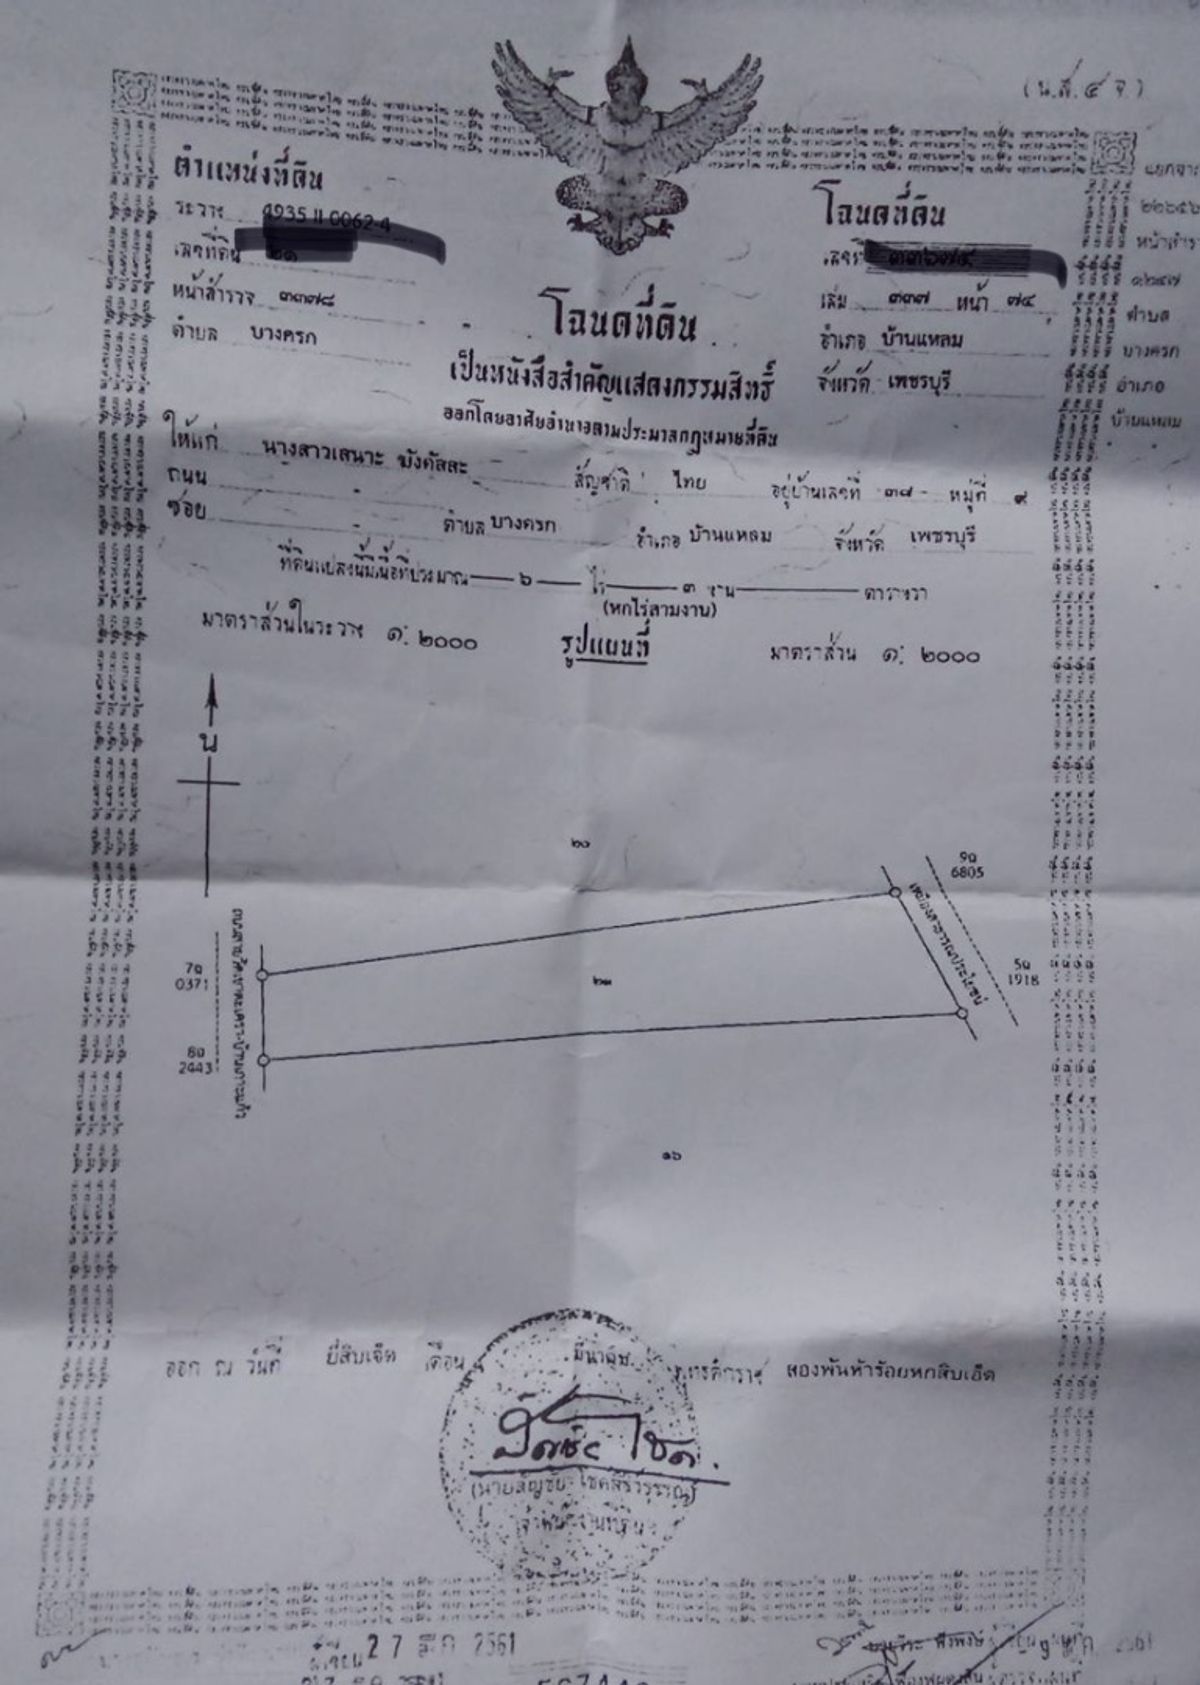 (น.ส.๔ จ.)
ตำแหน่งที่ดิน
ระวาง 4935 II 0062-4
เลขที่ดิน
หน้าสำรวจ ๓๓๗๘
ตำบล บางครก
โฉนดที่ดิน
เลขที่
เล่ม ๓๓๗ หน้า ๗๔
อำเภอ บ้านแหลม
จังหวัด เพชรบุรี
หน้าสำรวจ
ตำบล
บางครก
อำเภอ
บ้านแหลม
โฉนดที่ดิน
เป็นหนังสือสำคัญแสดงกรรมสิทธิ์
ออกโดยอาศัยอำนาจตามประมวลกฎหมายที่ดิน
ให้แก่ นางสาวเสนาะ ฆังคัสสะ สัญชาติ ไทย อยู่บ้านเลขที่ ๓๘ - หมู่ที่ ๙
ถนน
ซอย ตำบล บางครก อำเภอ บ้านแหลม จังหวัด เพชรบุรี
ที่ดินแปลงนี้มีเนื้อที่ประมาณ ๖ ไร่ ๓ งาน ตารางวา
(หกไร่สามงาน)
มาตราส่วนในระวาง ๑: ๒๐๐๐ รูปแผนที่ มาตราส่วน ๑: ๒๐๐๐
น
๒๐
9ฉ
6805
เหมืองสาธารณประโยชน์
7ฉ
0371
๒๑
5ฉ
1918
8ฉ
2443
๑๖
ออก ณ วันที่ ยี่สิบเจ็ด เดือน มีนาคม พุทธศักราช สองพันห้าร้อยหกสิบเอ็ด
เจ้าพนักงานที่ดิน
27 มี.ค. 2561